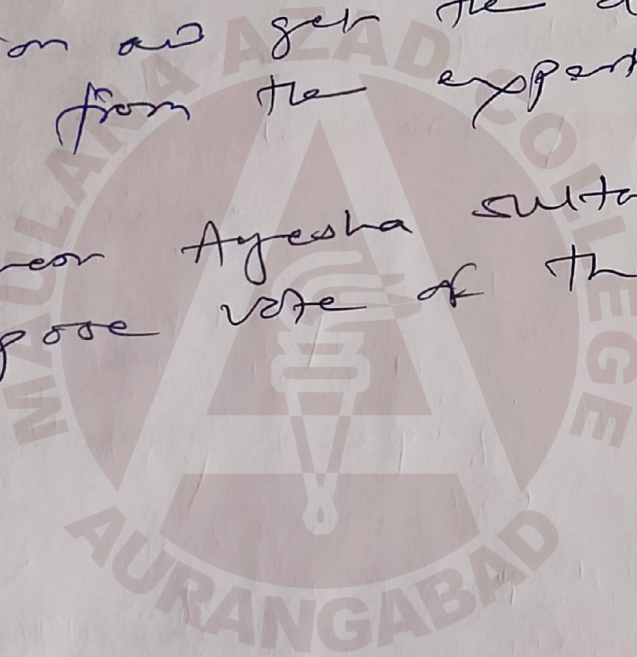 on and get the
from the expert
Ayesha sulta
pose vote of th
MAULANA AZAD COLLEGE
AURANGABAD